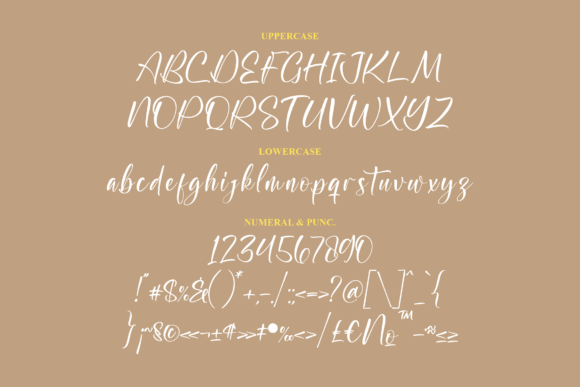 UPPERCASE
ABCDEFGHIJKLM
NOPQRSTUVWXYZ
LOWERCASE
abcdefghijklmnopqrstuvwxyz
NUMERAL & PUNC.
1234567890
!"#$%&()*+,-./:;<=>?@[\]^_`{